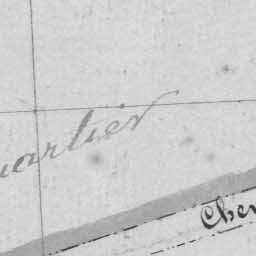 uartier
Che